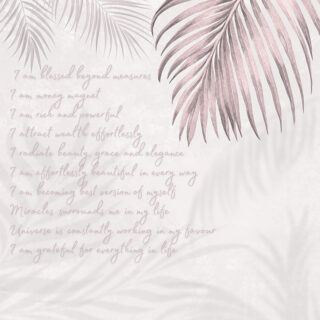 I am blessed beyond measures
I am money magnet
I am rich and powerful
I attract wealth effortlessly
I radiate beauty, grace and elegance
I am effortlessly beautiful in every way
I am becoming best version of myself
Miracles surrounds me in my life
Universe is constantly working in my favour
I am grateful for everything in life